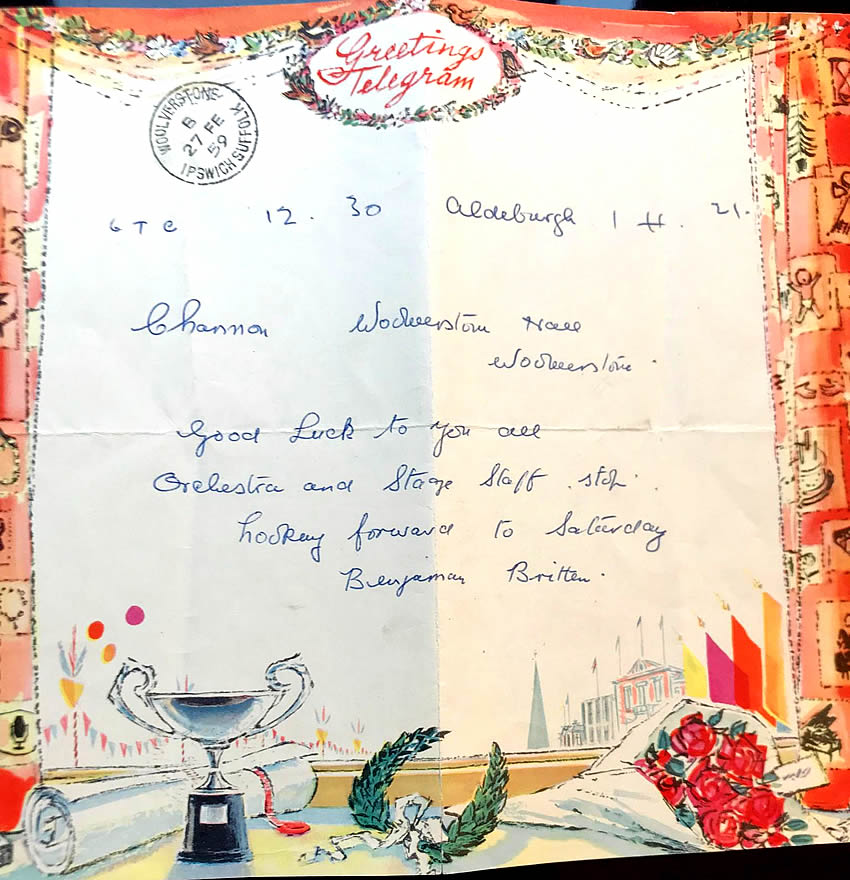 Greetings
Telegram
WOOLVERSTONE
B
27 FE
59
IPSWICH SUFFOLK
GTC 12.30 Aldeburgh 1 H. 21.
Channon Woolverstone Hall
Woolverstone.
Good Luck to you all
Orchestra and Stage Staff. stop.
Looking forward to Saturday
Benjaman Britten.